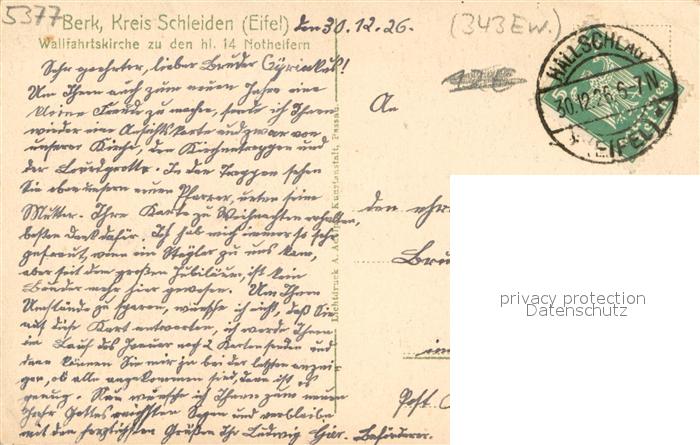 5377
Berk, Kreis Schleiden (Eifel) den 30.12.26. (343 Ew.)
Wallfahrtskirche zu den hl. 14 Nothelfern
Sehr geehrter, lieber Bruder Cyriakus!
Um Ihnen auch zum neuen Jahre eine
kleine Freude zu machen, sende ich Ihnen
wieder eine Ansichtskarte und zwar von
unserer Kirche, den Kirchentreppen und
der Lourdgrotte. In den Treppen sehen
Sie oben unsern neuen Pfarrer, unten seine
Mutter. Ihre Karte zu Weihnachten erhalten,
besten Dank dafür. Ich hab mich immer so sehr
gefreut, wenn ein Steyler zu uns kam,
aber seit dem großen Jubiläum, ist kein
Bruder mehr hier gewesen. Um Ihnen
Umstände zu sparen, wünsche ich nicht, daß Sie
auf diese Karte antworten, ich werde Ihnen
im Lauf des Januar noch 2 Karten senden und
dann können Sie mir ja bei der letzten anzei-
gen, ob alle angekommen sind, dann ist es
genug. Nun wünsche ich Ihnen zum neuen
Jahr Gottes reichsten Segen und verbleibe
mit den herzlichsten Grüßen Ihr Ludwig
Lichtdruck A. Kunstanstalt, Passau.
HALLSCHLAG
30.12.26. 6-7N
(EIFEL)
An
den ehr
Brü
im
Post.
privacy protection
Datenschutz